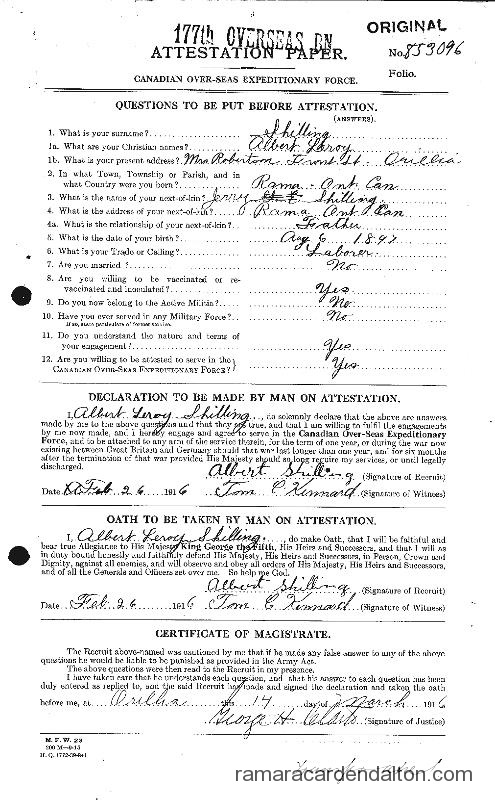 177th OVERSEAS BN
ATTESTATION PAPER.
ORIGINAL
No. 853096
Folio.
CANADIAN OVER-SEAS EXPEDITIONARY FORCE.
QUESTIONS TO BE PUT BEFORE ATTESTATION.
(ANSWERS).
1. What is your surname? Shilling
1a. What are your Christian names? Albert Leroy
1b. What is your present address? Mrs Robertson Front St. Orillia
2. In what Town, Township or Parish, and in
what Country were you born? Rama Ont Can
3. What is the name of your next-of-kin? Jerry Shilling
4. What is the address of your next-of-kin? Rama Ont Can
4a. What is the relationship of your next-of-kin? Father
5. What is the date of your birth? Aug 6 1897
6. What is your Trade or Calling? Laborer
7. Are you married? No
8. Are you willing to be vaccinated or re-
vaccinated and inoculated? Yes
9. Do you now belong to the Active Militia? No
10. Have you ever served in any Military Force? No
If so, state particulars of former service.
11. Do you understand the nature and terms of
your engagement? Yes
12. Are you willing to be attested to serve in the
CANADIAN OVER-SEAS EXPEDITIONARY FORCE? Yes
DECLARATION TO BE MADE BY MAN ON ATTESTATION.
I, Albert Leroy Shilling, do solemnly declare that the above are answers
made by me to the above questions and that they are true, and that I am willing to fulfil the engagements
by me now made, and I hereby engage and agree to serve in the Canadian Over-Seas Expeditionary
Force, and to be attached to any arm of the service therein, for the term of one year, or during the war now
existing between Great Britain and Germany should that war last longer than one year, and for six months
after the termination of that war provided His Majesty should so long require my services, or until legally
discharged.
Albert Shilling (Signature of Recruit)
Date Feb 26 1916 Tom C Kennard (Signature of Witness)
OATH TO BE TAKEN BY MAN ON ATTESTATION.
I, Albert Leroy Shilling, do make Oath, that I will be faithful and
bear true Allegiance to His Majesty King George the Fifth, His Heirs and Successors, and that I will as
in duty bound honestly and faithfully defend His Majesty, His Heirs and Successors, in Person, Crown and
Dignity, against all enemies, and will observe and obey all orders of His Majesty, His Heirs and Successors,
and of all the Generals and Officers set over me. So help me God.
Albert Shilling (Signature of Recruit)
Date Feb 26 1916 Tom C Kennard (Signature of Witness)
CERTIFICATE OF MAGISTRATE.
The Recruit above-named was cautioned by me that if he made any false answer to any of the above
questions he would be liable to be punished as provided in the Army Act.
The above questions were then read to the Recruit in my presence.
I have taken care that he understands each question, and that his answer to each question has been
duly entered as replied to, and the said Recruit has made and signed the declaration and taken the oath
before me, at Orillia this 14 day of March 1916
George H (Signature of Justice)
M. F. W. 23
200 M—9-15
H. Q. 1772-39-841
ramaracardendalton.com